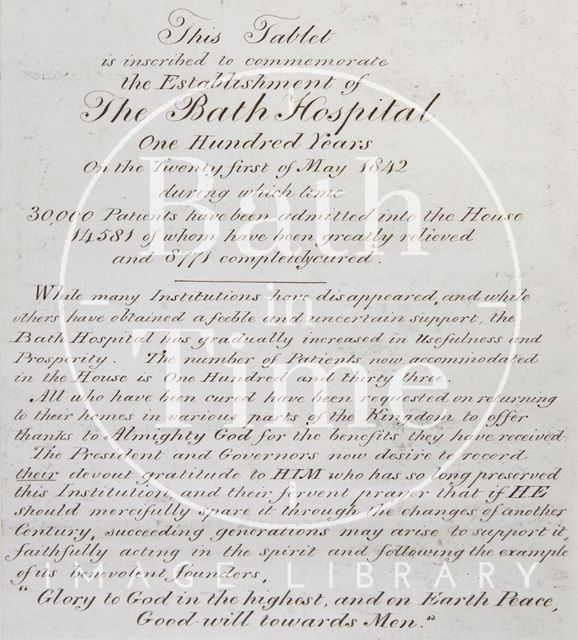 This Tablet
is inscribed to commemorate
the Establishment of
The Bath Hospital
One Hundred Years
On the Twenty first of May 1842
during which time
30,000 Patients have been admitted into the House
14581 of whom have been greatly relieved
and 8771 completely cured.
While many Institutions have disappeared, and while
others have obtained a feeble and uncertain support, the
Bath Hospital has gradually increased in Usefulness and
Prosperity. The number of Patients now accommodated
in the House is One Hundred and thirty three.
All who have been cured have been requested on returning
to their homes in various parts of the Kingdom to offer
thanks to Almighty God for the benefits they have received
The President and Governors now desire to record
their devout gratitude to HIM who has so long preserved
this Institution and their fervent prayer that if HE
should mercifully spare it through the changes of another
Century, succeeding generations may arise to support it,
faithfully acting in the spirit and following the example
of its benevolent founders,
"Glory to God in the highest, and on Earth Peace,
Good-will towards Men."
Bath
in
Time
IMAGE LIBRARY